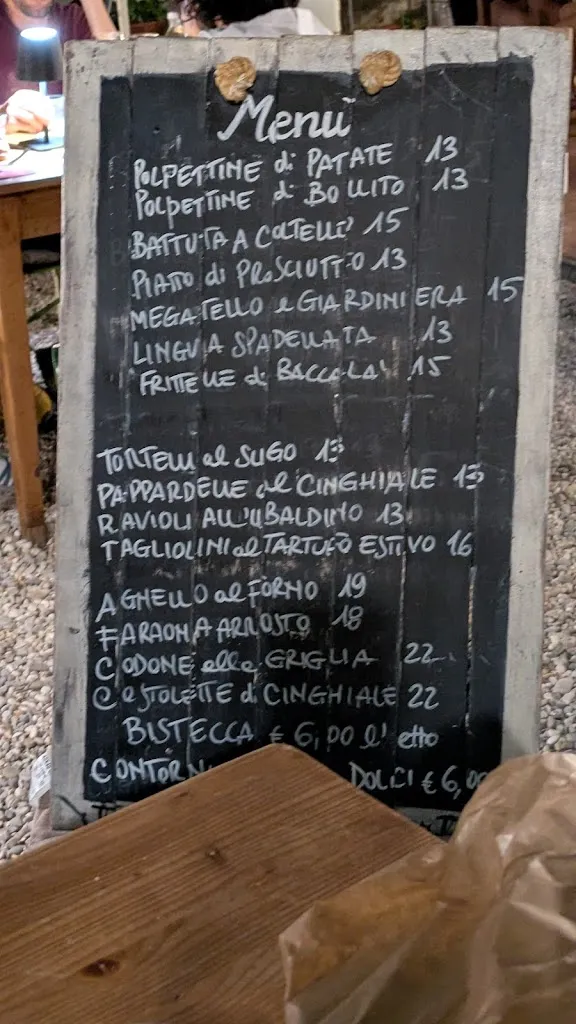 Menù
POLPETTINE di PATATE 13
POLPETTINE di BOLLITO 13
BATTUTA A COLTELLO 15
PIATTO di PROSCIUTTO 13
MEGATELLO e GIARDINIERA 15
LINGUA SPADELLATA 13
FRITTELLE di BACCALA' 15
TORTELLI al SUGO 13
PAPPARDELLE al CINGHIALE 13
RAVIOLI ALL'UBALDINO 13
TAGLIOLINI al TARTUFO ESTIVO 16
AGNELLO al FORNO 19
FARAONA ARROSTO 18
CODONE alla GRIGLIA 22
COSTOLETTE di CINGHIALE 22
BISTECCA € 6,00 l' etto
DOLCI € 6,00